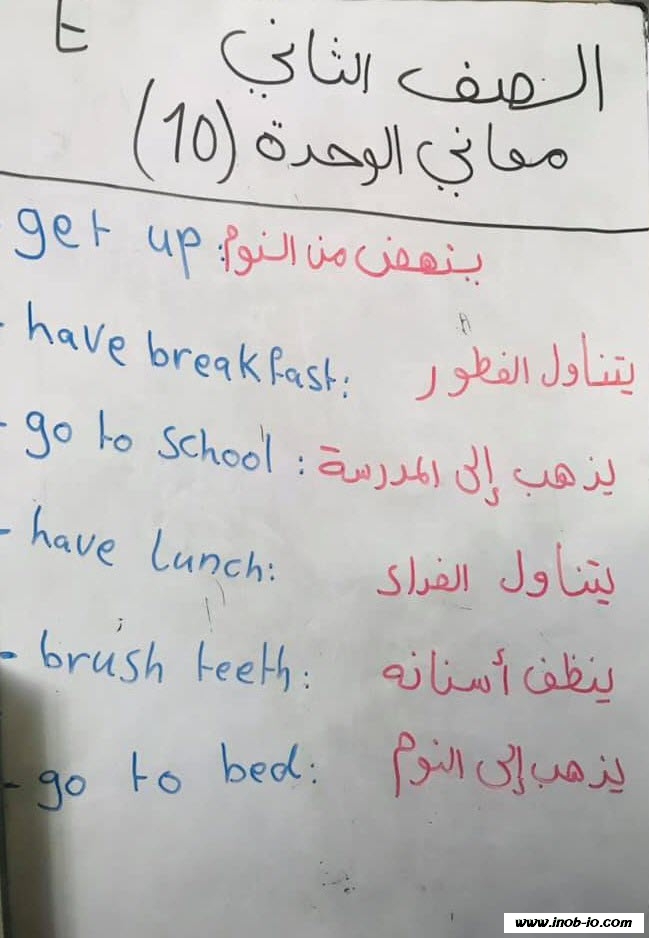 E
الصف الثاني
معاني الوحدة (10)
get up: ينهض من النوم
- have breakfast: يتناول الفطور
- go to school: يذهب إلى المدرسة
- have lunch: يتناول الغداء
- brush teeth: ينظف أسنانه
- go to bed: يذهب إلى النوم
www.inob-io.com